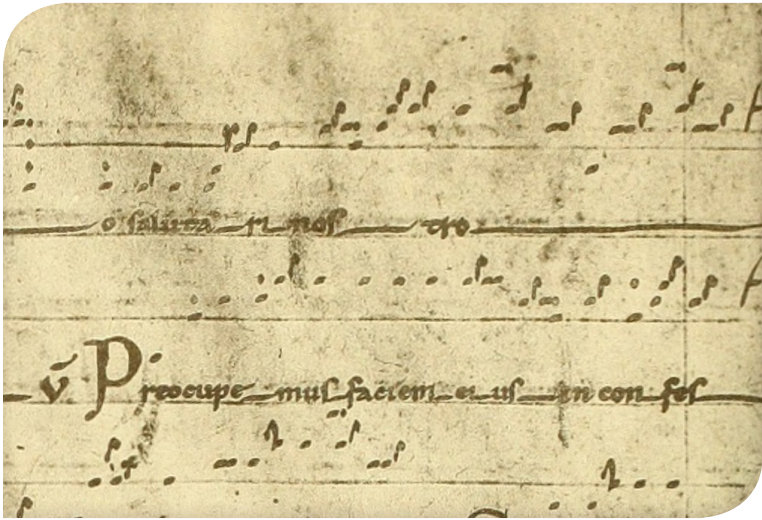 o saluta ri nos tro
v̄ Preocupe mus faciem ei us in con fes